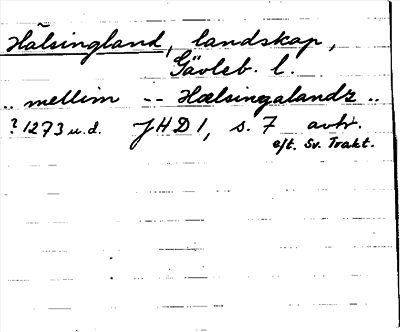 Hälsingland, landskap,
Gävleb. l.
.. mellim -- Hælsingalandz ..
? 1273 u.d. JHD 1, s. 7 avtr.
eft. Sv. Trakt.